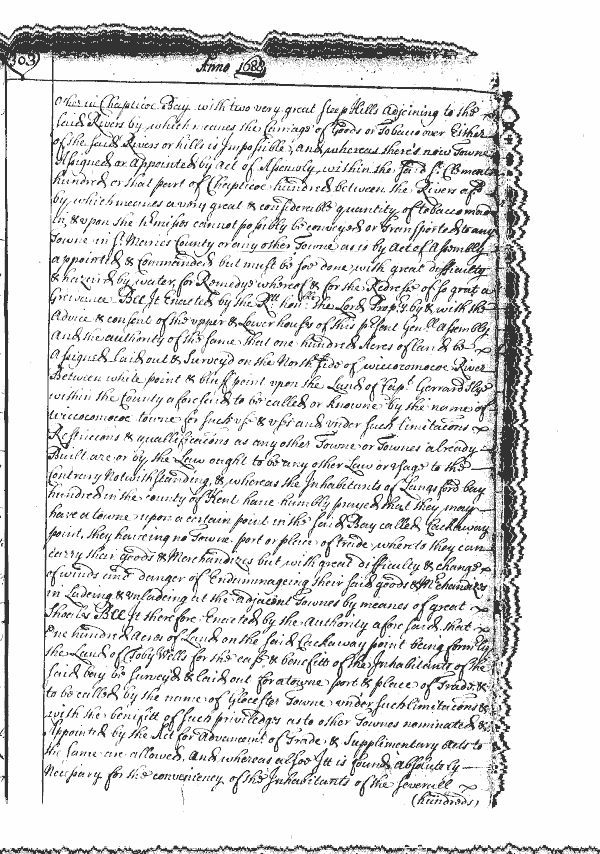 303
Anno 1688
Other in Chapticoe Bay with two very great steep Hills Adjoining to the
said Rivers by which meanes the Carriage of Goods or Tobacco over Either
of the said Rivers or hills is Impossible, And whereas there's now Towne
Assigned or Appointed by Act of Assembly within the said St. Clements
hundred or that part of Chapticoe hundred between the Rivers afsd
by which meanes a very great & considerable quantity of tobacco made
in, & upon the premises cannot possibly be conveyed or Transported to any
Towne in St. Maries County or any other Towne as is by Act of Assembly
appointed & Commanded but must be soe done with great difficulty
& hazard by water, for Remedy whereof & for the Redress of so great a
Grievance Bee It Enacted by the Rt. honble the Lord Propry by & with the
Advice & consent of the upper & Lower houses of this pesent Genll Assembly
And the authority of the same That one hundred Acres of land be
Assigned Laid out & Surveyd on the North side of wiccocomocoe River
Between white point & bluff point upon the Land of Capt. Gerrard Slye
within the County aforesaid to be called or knowne by the name of
wiccocomocoe towne for such use & uses and under such limitacons
Restriccons & quallificacions as any other Towne or Townes already
Built are or by the Law ought to be any other Law or usage to the
Contrary Notwithstanding, & whereas the Inhabitants of Langford bay
hundred in the county of Kent have humbly prayed that they may
have a towne upon a certain point in the said Bay called Lackaway
point, they haveing no Towne port or place of trade where to they can
carry their goods & Merchandizes but with great difficulty & change
of winds and danger of Endammageing their said goods & Mchandizes
in Ladeing & unladeing at the adjacent Townes by meanes of great
Shoales Bee It therefore Enacted by the Authority aforesaid that
One hundred Acres of Land on the said Lackaway point being formerly
the Land of Toby Wells for the ease & benefitt of the Inhabitants of the
said bay be Surveyd & laid out for a towne port & place of Trade, &
to be called by the name of Glocester Towne under such limitacons &
with the benifitt of such priviledges as to other Townes nominated &
Appointed by the Act for Advancemt of Trade & Supplimentary Acts to
the same are allowed, And whereas alsoe Itt is found absolutely
Necessary for the conveniency of the Inhabitants of the severall
(hundreds)